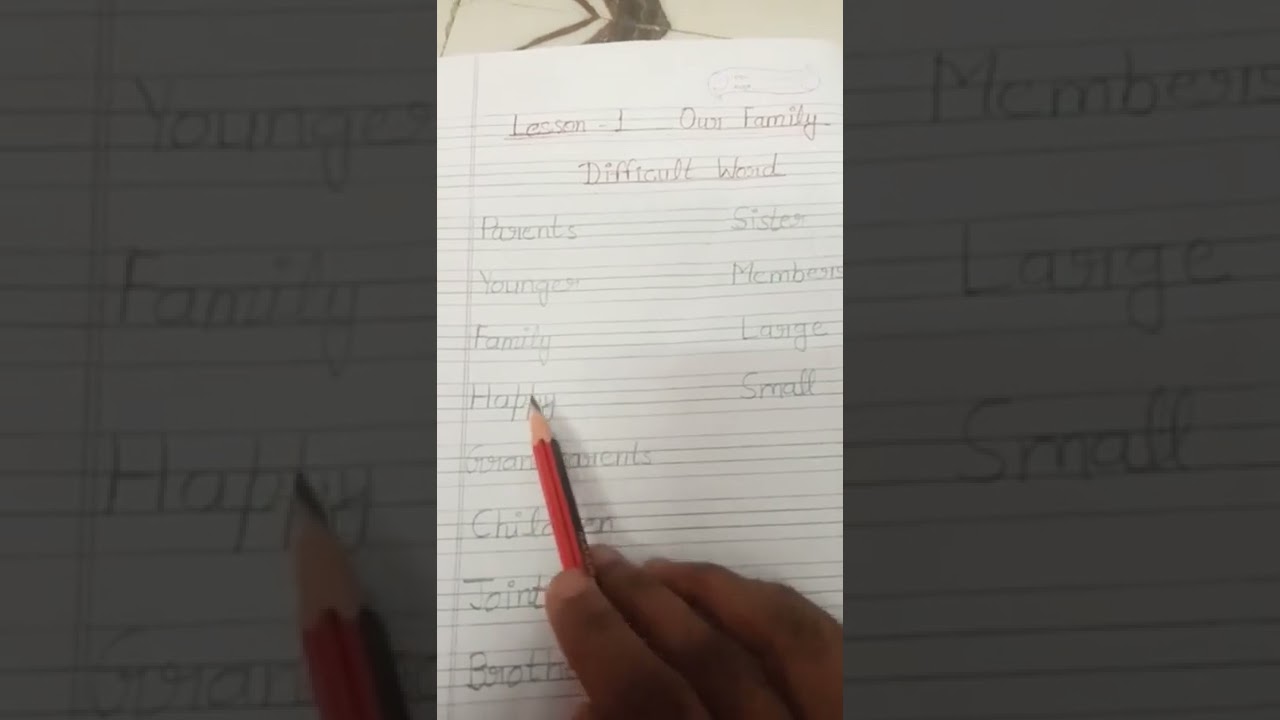 Lesson - 1 Our Family
Difficult Word
Parents Sister
Younger Members
Family Large
Happy Small
Grandparents
Children
Joint